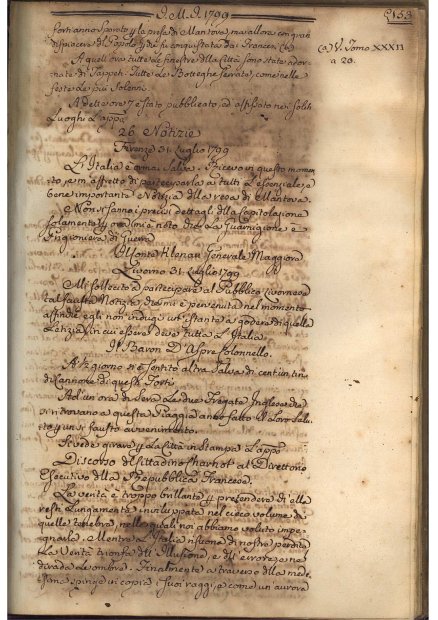 I.M.I. 1799
153
forti anno sparato y la presa di Mantova, ma allora con gran
dispiacere del Popolo y di fu conquistata da Francesi. (a)
(a) V. Tomo XXXII
a 20.
A quell'ora tutte le finestre della Città sono state ador-
nate di Tappeti. Tutte le Botteghe serrate, come nelle
feste le più solenni.
A dette ore 7 è stato pubblicato, ed affissato nei soliti
Luoghi l'app.
26 Notizie
Firenze 31 Luglio 1799
L'Italia è ormai salva. Ricevo in questo momen-
to, e m'affretto di parteciparla a tutti le sensuale, e
bene importante Notizia della resa di Mantova.
Non si sanno i precisi dettagli della Capitolazione
solamente y ora mi è noto che la Guarnigione è
Prigioniera di Guerra.
Klenau Generale Maggiore
Livorno 31 Luglio 1799
Mi sollecito a partecipare al Pubblico Livornese
tal fausta Notizia che mi è pervenuta nel momento
affinché egli non indugi un istante a godere di quella
Letizia, in cui esser deve tutta l'Italia.
Il Baron D'Aspre Colonnello.
A giorno si è sentito altra Salva di cent'un tiri
di Cannone di questi Forti.
Ad un'ora di sera le due Fregate Inglesi che
si trovano a questa Spiaggia anno fatto il loro Salu-
to y un sì fausto avvenimento.
Si vede girare y la Città in Stampa l'app.
Discorso del Cittadino al Direttorio
Esecutivo della Repubblica Francese.
La verità è troppo brillante y pretendere di elle
resti lungamente inviluppata nel cieco volume di
quelle tenebre, nelle quali noi abbiamo voluto impe-
gnarla. Mentre l'Italia risuona di nostre perdite
La Verità trionfa dell'Illusione, e dell'errore, e ne
dirada le ombre. Finalmente a traverso della mede-
sima spinge in copia i suoi raggi, e come un'aurora